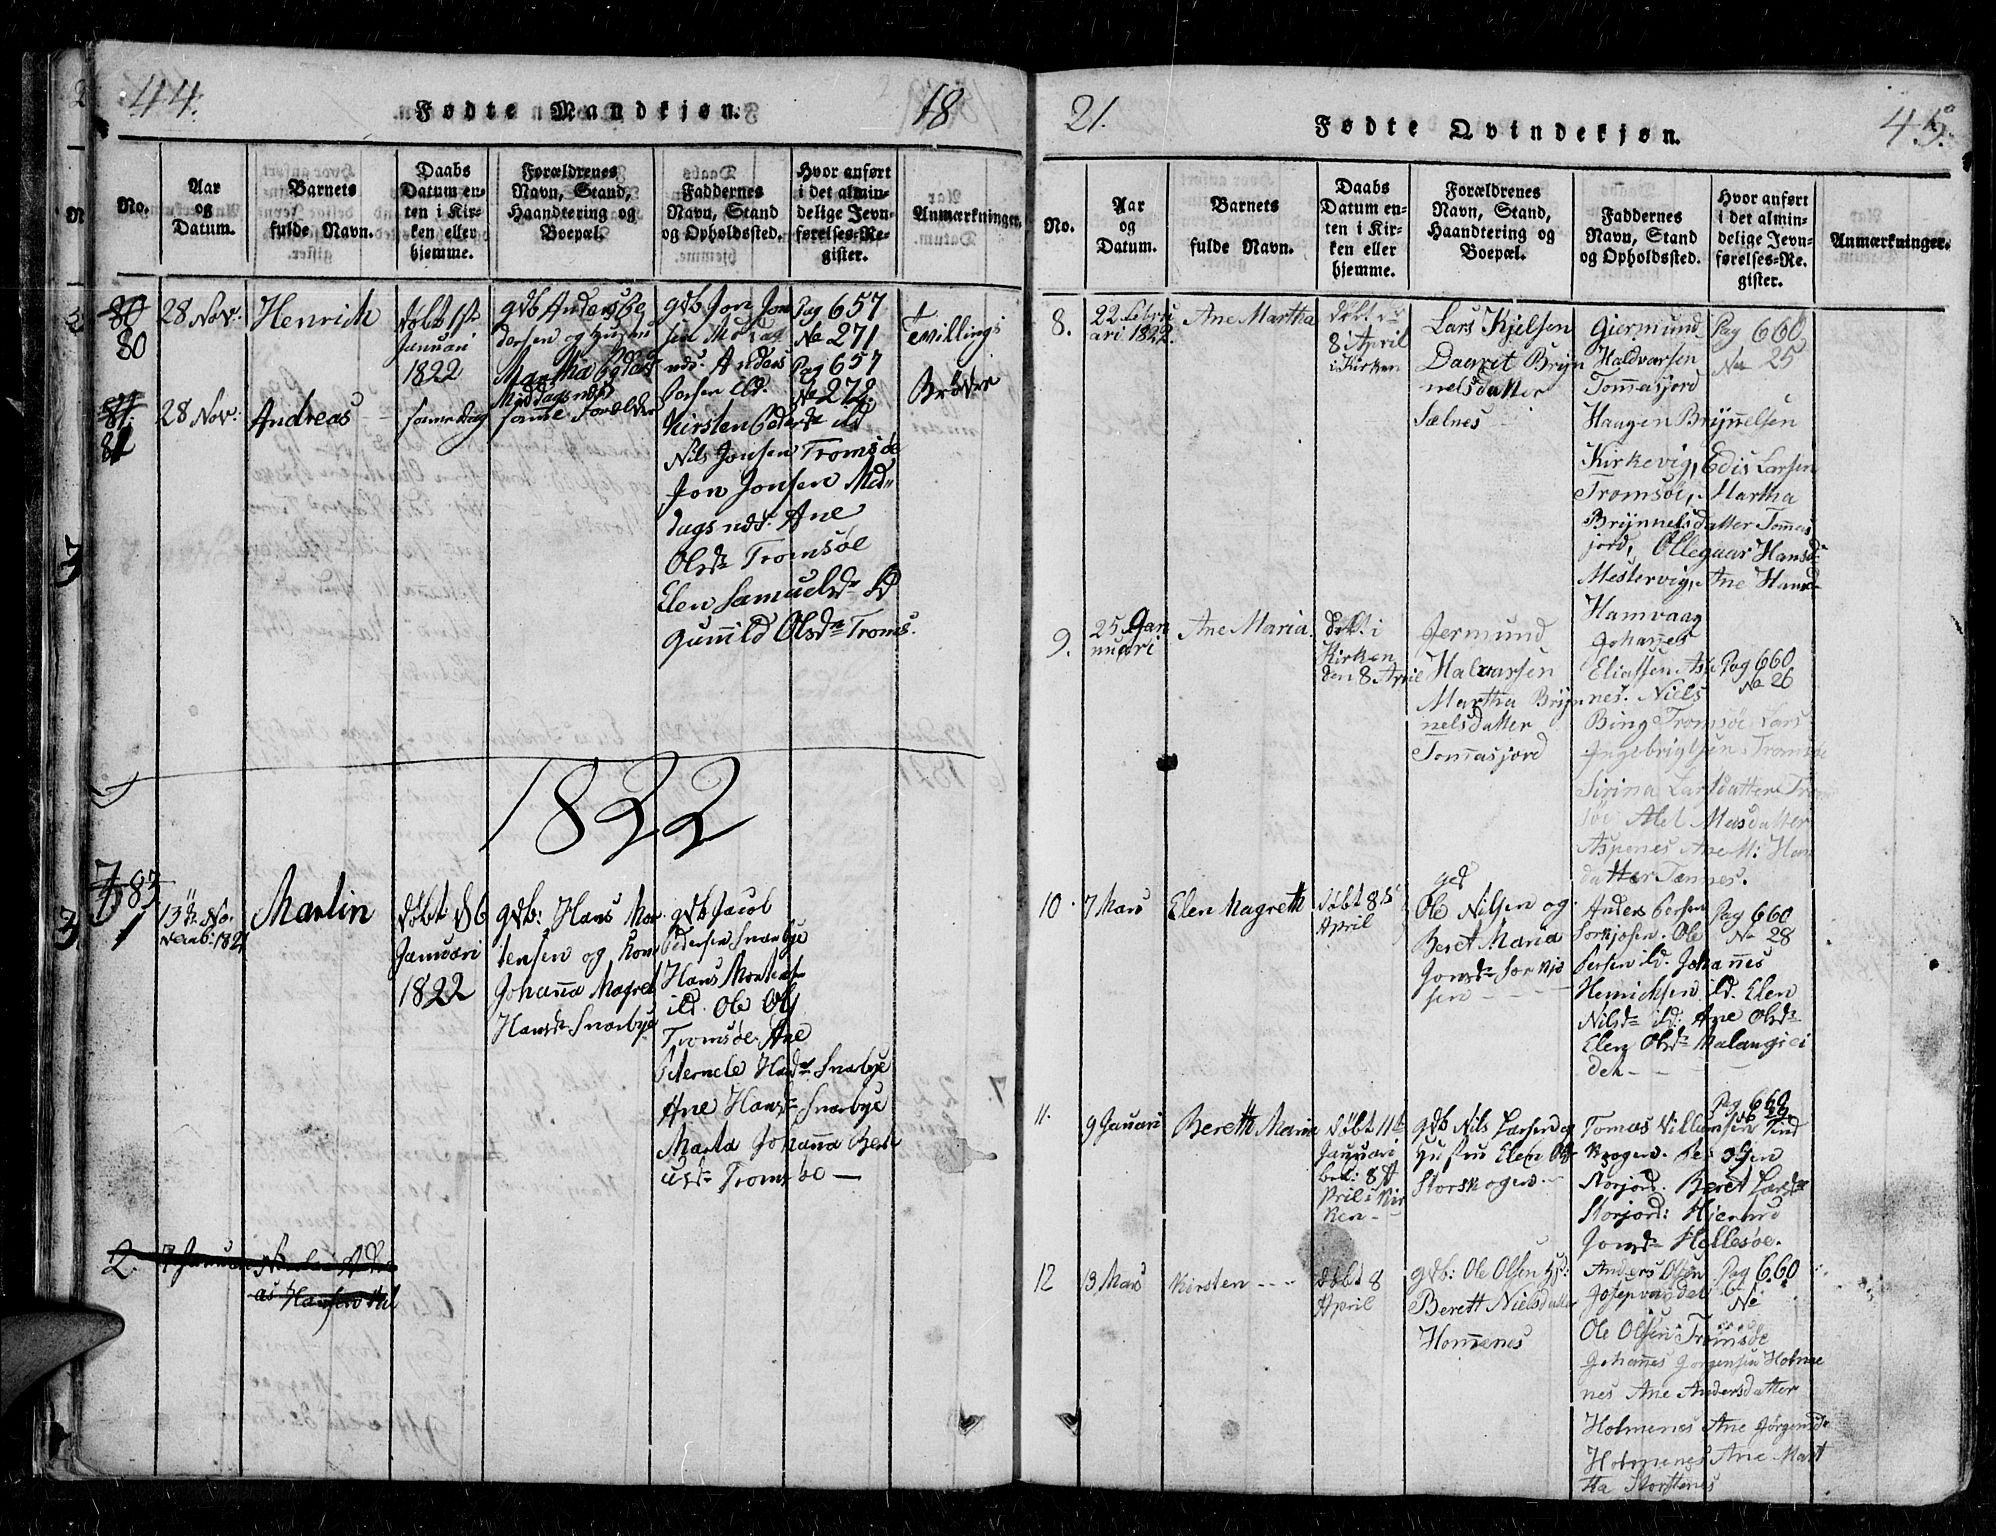 44.
Fødte Mandkjøn.
18
No.
Aar
og
Datum.
Barnets
fulde Navn.
Daabs
Datum en-
ten i Kir-
ken eller
hjemme.
Forældrenes
Navn, Stand,
Haandtering og
Boepæl.
Faddernes
Navn, Stand
og Opholdssted.
Hvor anført
i det almin-
delige Jevn-
førelses-Re-
gister.
Anmærkninger.
80
80
28 Nov:
Henrich
døbt
Januari
1822
gdb Anders
og
Martha
gdb Jon Jon
Anders
Kirsten
Nils Jonsen Tromsøe
Jon Jonsen Mid-
dagsnæs: Ane
Olsdr Tromsøe
Elen Samuelsdr ild
Gunnild Olsdr Troms.
Pag 657
No 271
Pag 657
No 272
Tvillings
Brødre
81
28 Nov:
Andreas
samme Dag
samme Forælder
1822
83
1
13de No-
vemb: 1821
Martin
døbt d 6
Januari
1822
gdb: Hans Mor
tensen og Kone
Johanna Magret
Hansdr Snarbye
gdb Jacob
Pedersen Snarbye
Hans Mortens
ild. Ole Ols
Tromsøe. Ane
Pernele Hansdr Snarbye
Ane Hansdr Snarbye
Marta Johanna Bert
usdr Tromsøe —
2.
21.
Fødte Qvindekjøn.
45.
No.
Aar
og
Datum.
Barnets
fulde Navn.
Daabs
Datum en-
ten i Kir-
ken eller
hjemme.
Forældrenes
Navn, Stand,
Haandtering og
Boepæl.
Faddernes
Navn, Stand
og Opholdssted.
Hvor anført
i det almin-
delige Jevn-
førelses-Re-
gister.
Anmærkninger.
8.
22 Febru
ari 1822.
Ane Martha
døbt
8 April
i Kirken
Lars Kjelsen
Daaret Bryn
nelsdatter
Sælnes
Giermund
Haldvarsen
Tommasjord
Haagen Brynnelsen
Kirkevig, Edis Larsen
Tromsøe, Martha
Brynnelsdatter Tommas
jord, Ollegaar Hansd
Mestervig, Ane Hansd
Hamvaag
Pag 660
No 25
9.
25 Jan
nuari
Ane Maria
Døbt i
Kirken
den 8 April
Jermund
Halvarsen
Martha Bryn
nelsdatter
Tommasjord
Johannes
Eliassen Aspe
nes. Niels
Bing Tromsøe Lars
Ingebrigtsen Tromsøe
Sirina Larsdatter Trom
søe Alet Masdatter
Aspenes Ane M: Han
datter Tannes.
Pag 660
No 26
10.
7 Mars
Elen Magreth
døbt 8
April
gd
Ole Nilsen og
Beret Maria
Jonsdr Sorkjo
sen
Anders Persen
Sorkjosen. Ole
Persen ild. Johannes
Henrichsen ild. Elen
Nilsdr ild: Ane Olsdr
Elen Olsdr Malangsei
det
Pag 660
No 28
11.
9 Januari
Bereth Maria
døbt 11te
Januari
8 A
pril i Kir
ken
gdb Nils Larsen og
Hustru Elen Ols
Storskogen
Tomas Villumsen Tind
Storjord: Beret Larsdr
Storjord:
Jonsdr Hellesøe.
Pag 660
No 29
12
13 Mars
Kirsten
døbt 8
April
gdb: Ole Olsen Hs:
Berett Nielsdatter
Hommenes
Anders Olsen
Josepvandet
Ole Olsen Tromsøe
Johannes Jorgensen Holme
nes Ane Andersdatter
Holmenes Ane Jørgensdr
Holmenes Ane Mart
ha Storstenes
Pag 660
No